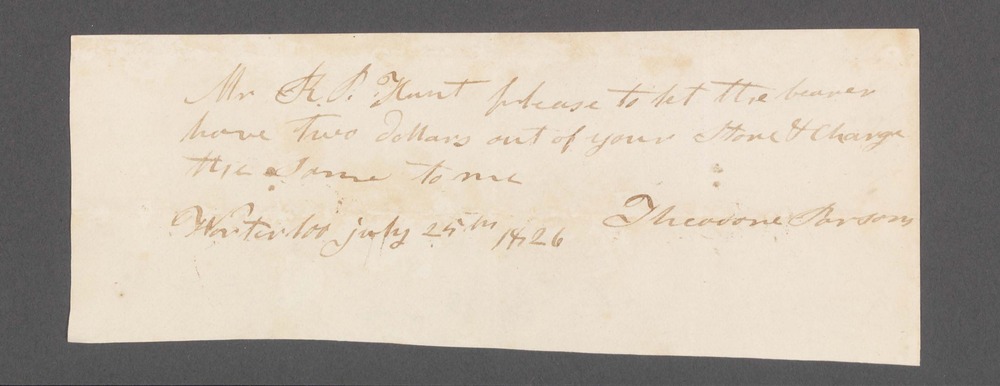 Mr R. P. Hunt please to let the bearer
have two dollars out of your Store & Charge
the Same to me
Waterloo july 25th 1826 Theodore Parsons